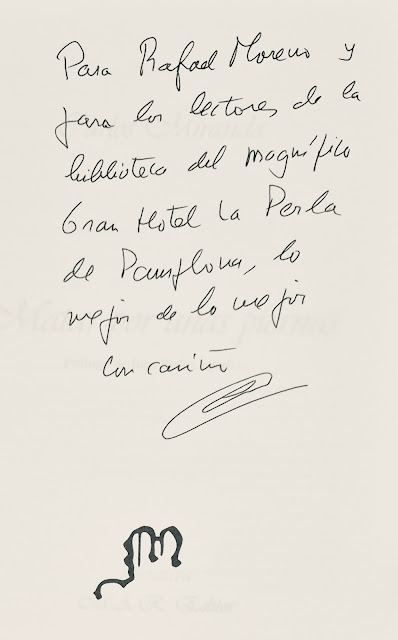 Para Rafael Moreno y
para los lectores de la
biblioteca del magnífico
Gran Hotel La Perla
de Pamplona, lo
mejor de lo mejor
Con cariño